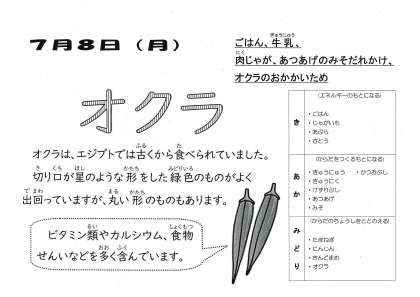 7月8日（月）
ごはん、牛乳、
肉じゃが、あつあげのみそだれかけ、
オクラのおかかいため
オクラ
オクラは、エジプトでは古くから食べられていました。
切り口が星のような形をした緑色のものがよく
出回っていますが、丸い形のものもあります。
ビタミン類やカルシウム、食物
せんいなどを多く含んでいます。
き
（エネルギーのもとになる）
・ごはん
・じゃがいも
・あぶら
・さとう
あか
（からだをつくるもとになる）
・ぎゅうにゅう ・かつおぶし
・ぎゅうにく
・けずりぶし
・あつあげ
・みそ
みどり
（からだのちょうしをととのえる）
・たまねぎ
・にんじん
・さんどまめ
・オクラ